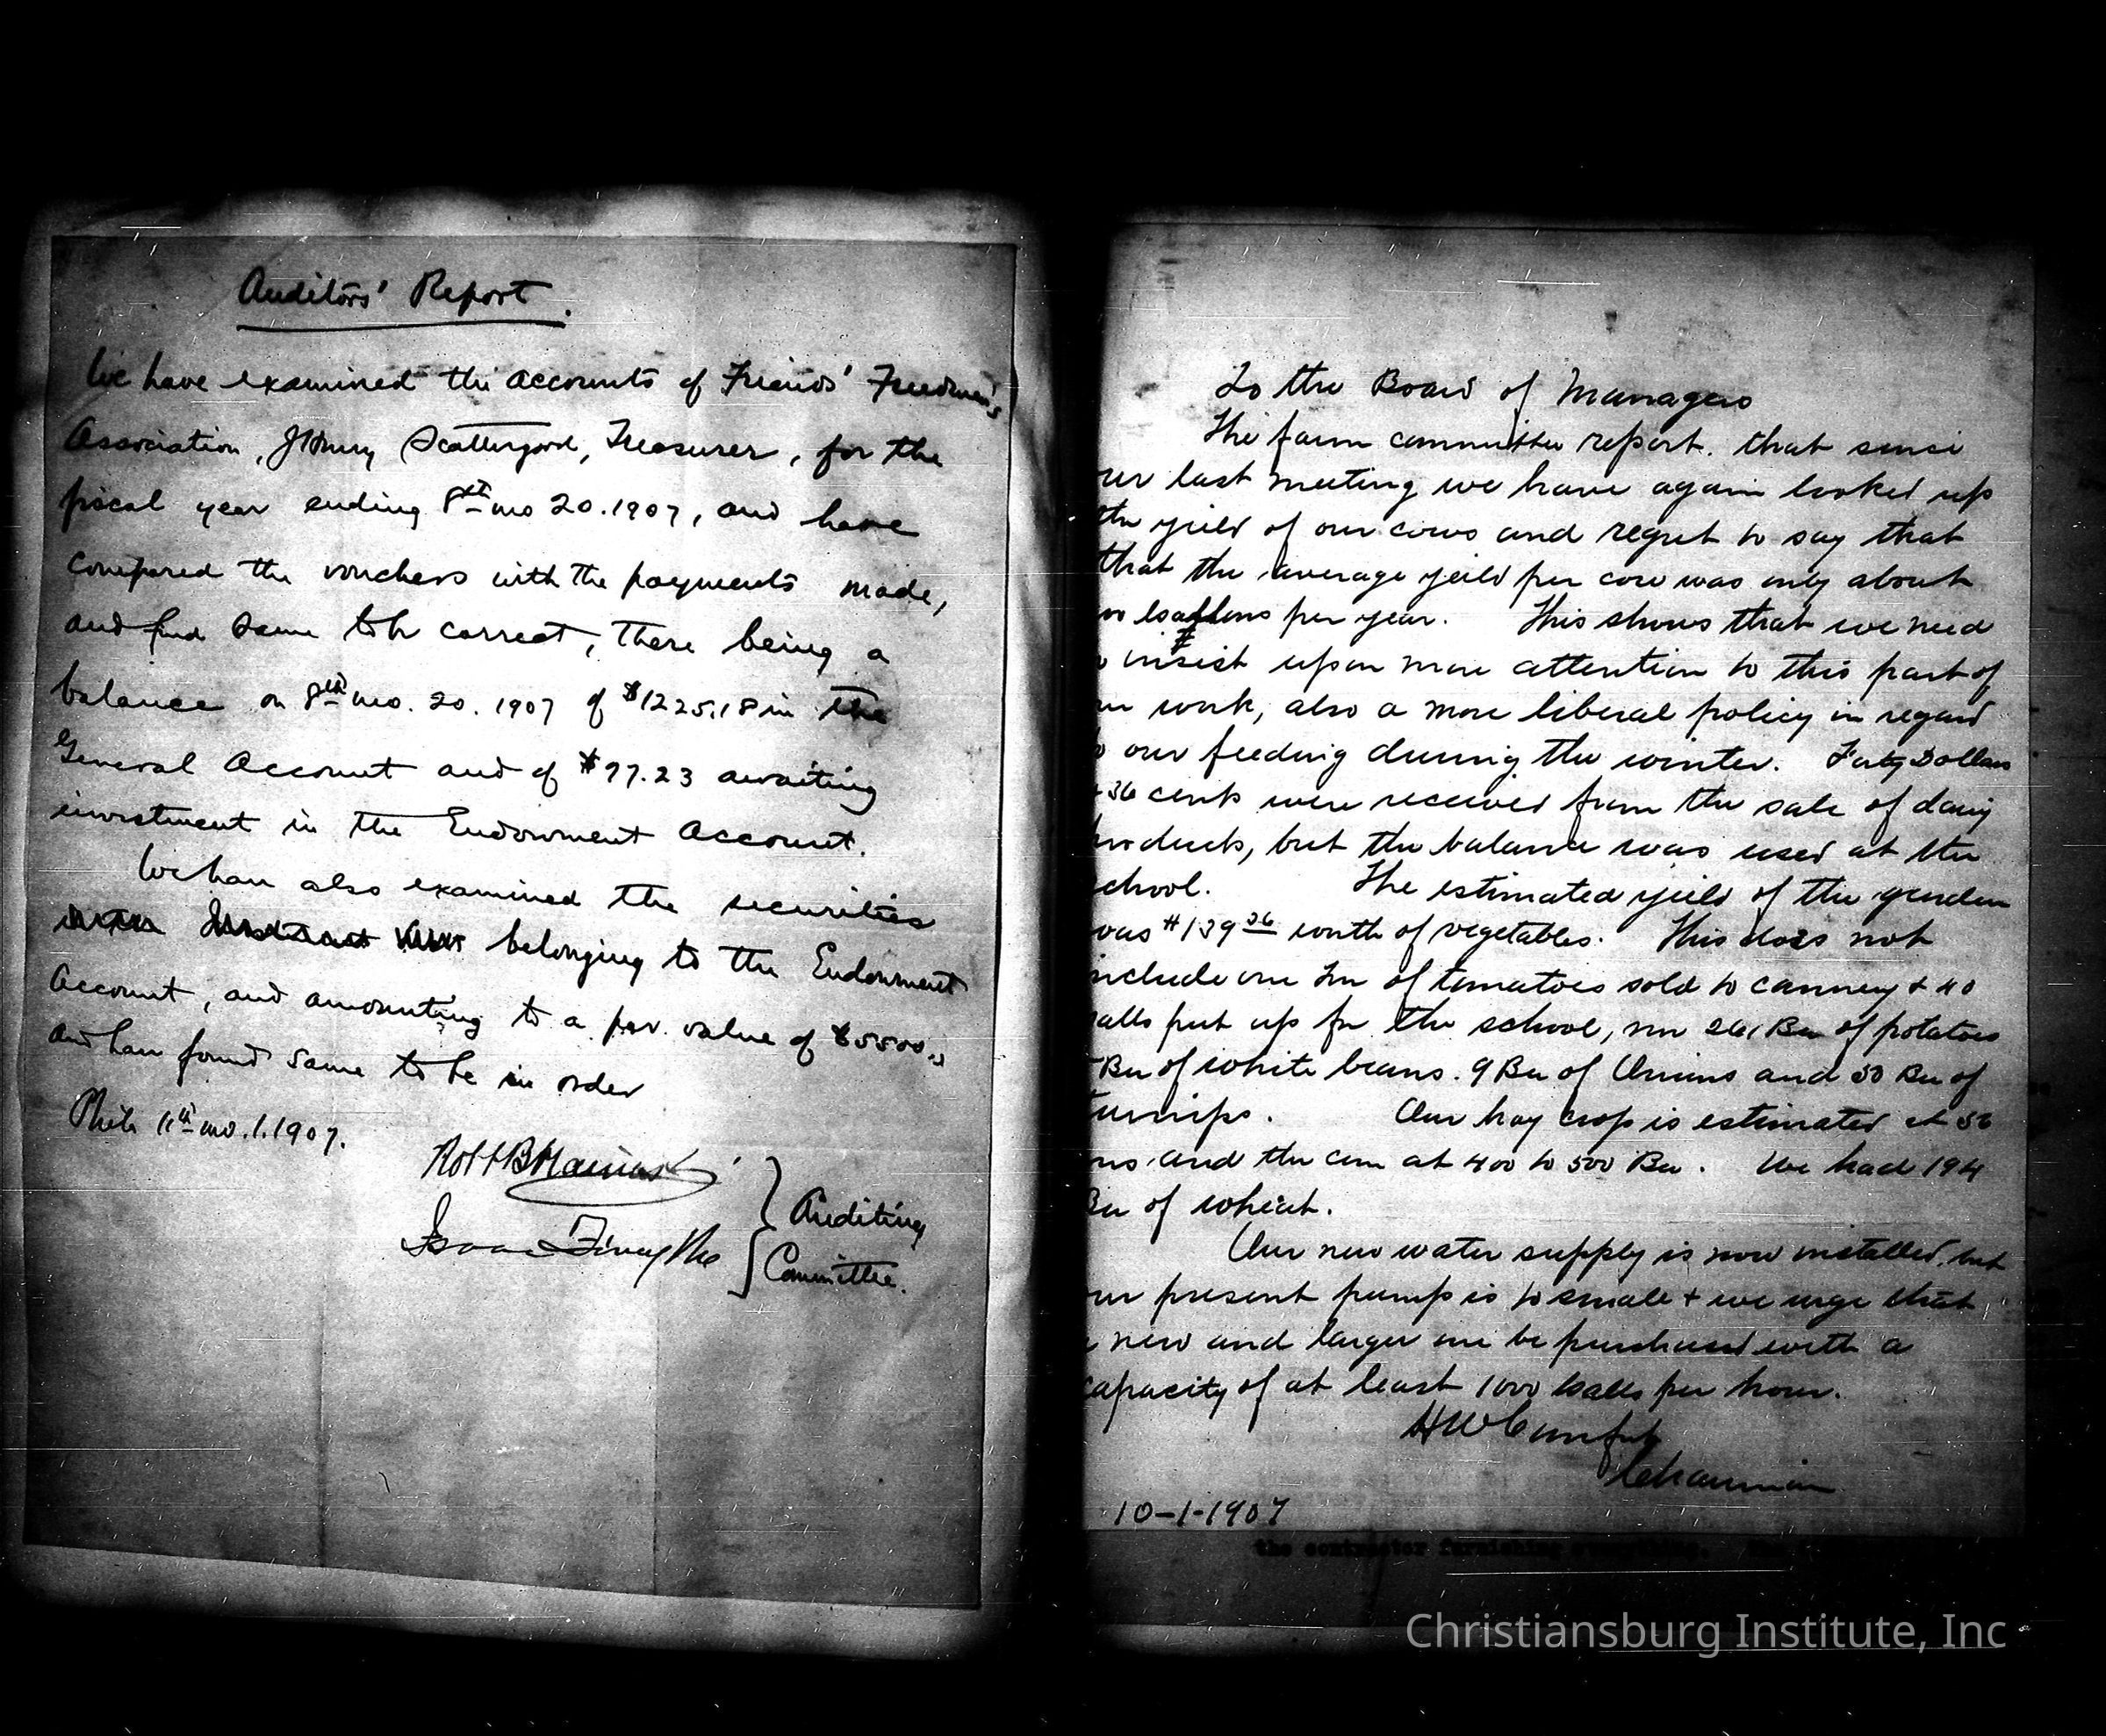 Auditors' Report.
We have examined the accounts of Friends' Freedmen's
Association, J Henry Scattergood, Treasurer, for the
fiscal year ending 8th mo 20. 1907, and have
compared the vouchers with the payments made,
and find same to be correct, there being a
balance on 8th mo. 20. 1907 of $1225.18 in the
General Account and of $97.23 awaiting
investment in the Endowment Account.
We have also examined the securities
belonging to the Endowment
Account, and amounting to a par value of $5500.
and have found same to be in order
Phila 11th mo. 1. 1907.
Robt B Haines
Isaac Forsythe
Auditing
Committee.
To the Board of Managers
The farm committee report. that since
ur last meeting we have again looked up
the yield of our cows and regret to say that
that the average yeild per cow was only about
00 Gallons per year. This shows that we need
insist upon more attention to this part of
ur work, also a more liberal policy in regard
o our feeding during the winter. Forty Dollars
+ 36 cents were received from the sale of dairy
roducts, but the balance was used at the
chool. The estimated yield of the garden
was $139 36 worth of vegetables. This does not
nclude one Ton of tomatoes sold to cannery + 40
alls put up for the school, nor 261 Bu of potatoes
Bu of white beans. 9 Bu of Onions and 50 Bu of
turnips. Our hay crop is estimated at 50
ns and the corn at 400 to 500 Bu. We had 194
Bu of wheat.
Our new water supply is now installed, but
ur present pump is to small + we urge that
new and larger one be purchased with a
capacity of at least 1000 Galls per hour.
H W C
Chairman
10-1-1907
the contractor furnishing everything.
Christiansburg Institute, Inc